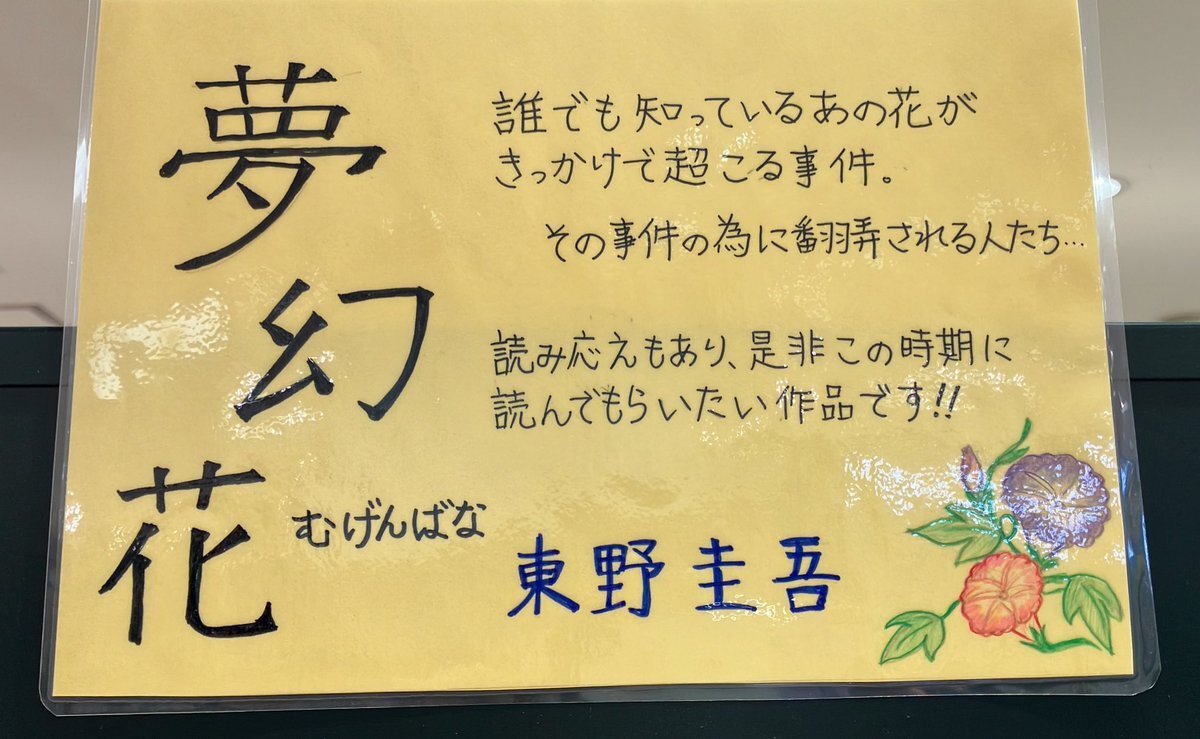 夢幻花
むげんばな
誰でも知っているあの花が
きっかけで超こる事件。
その事件の為に翻弄される人たち…
読み応えもあり、是非この時期に
読んでもらいたい作品です!!
東野圭吾